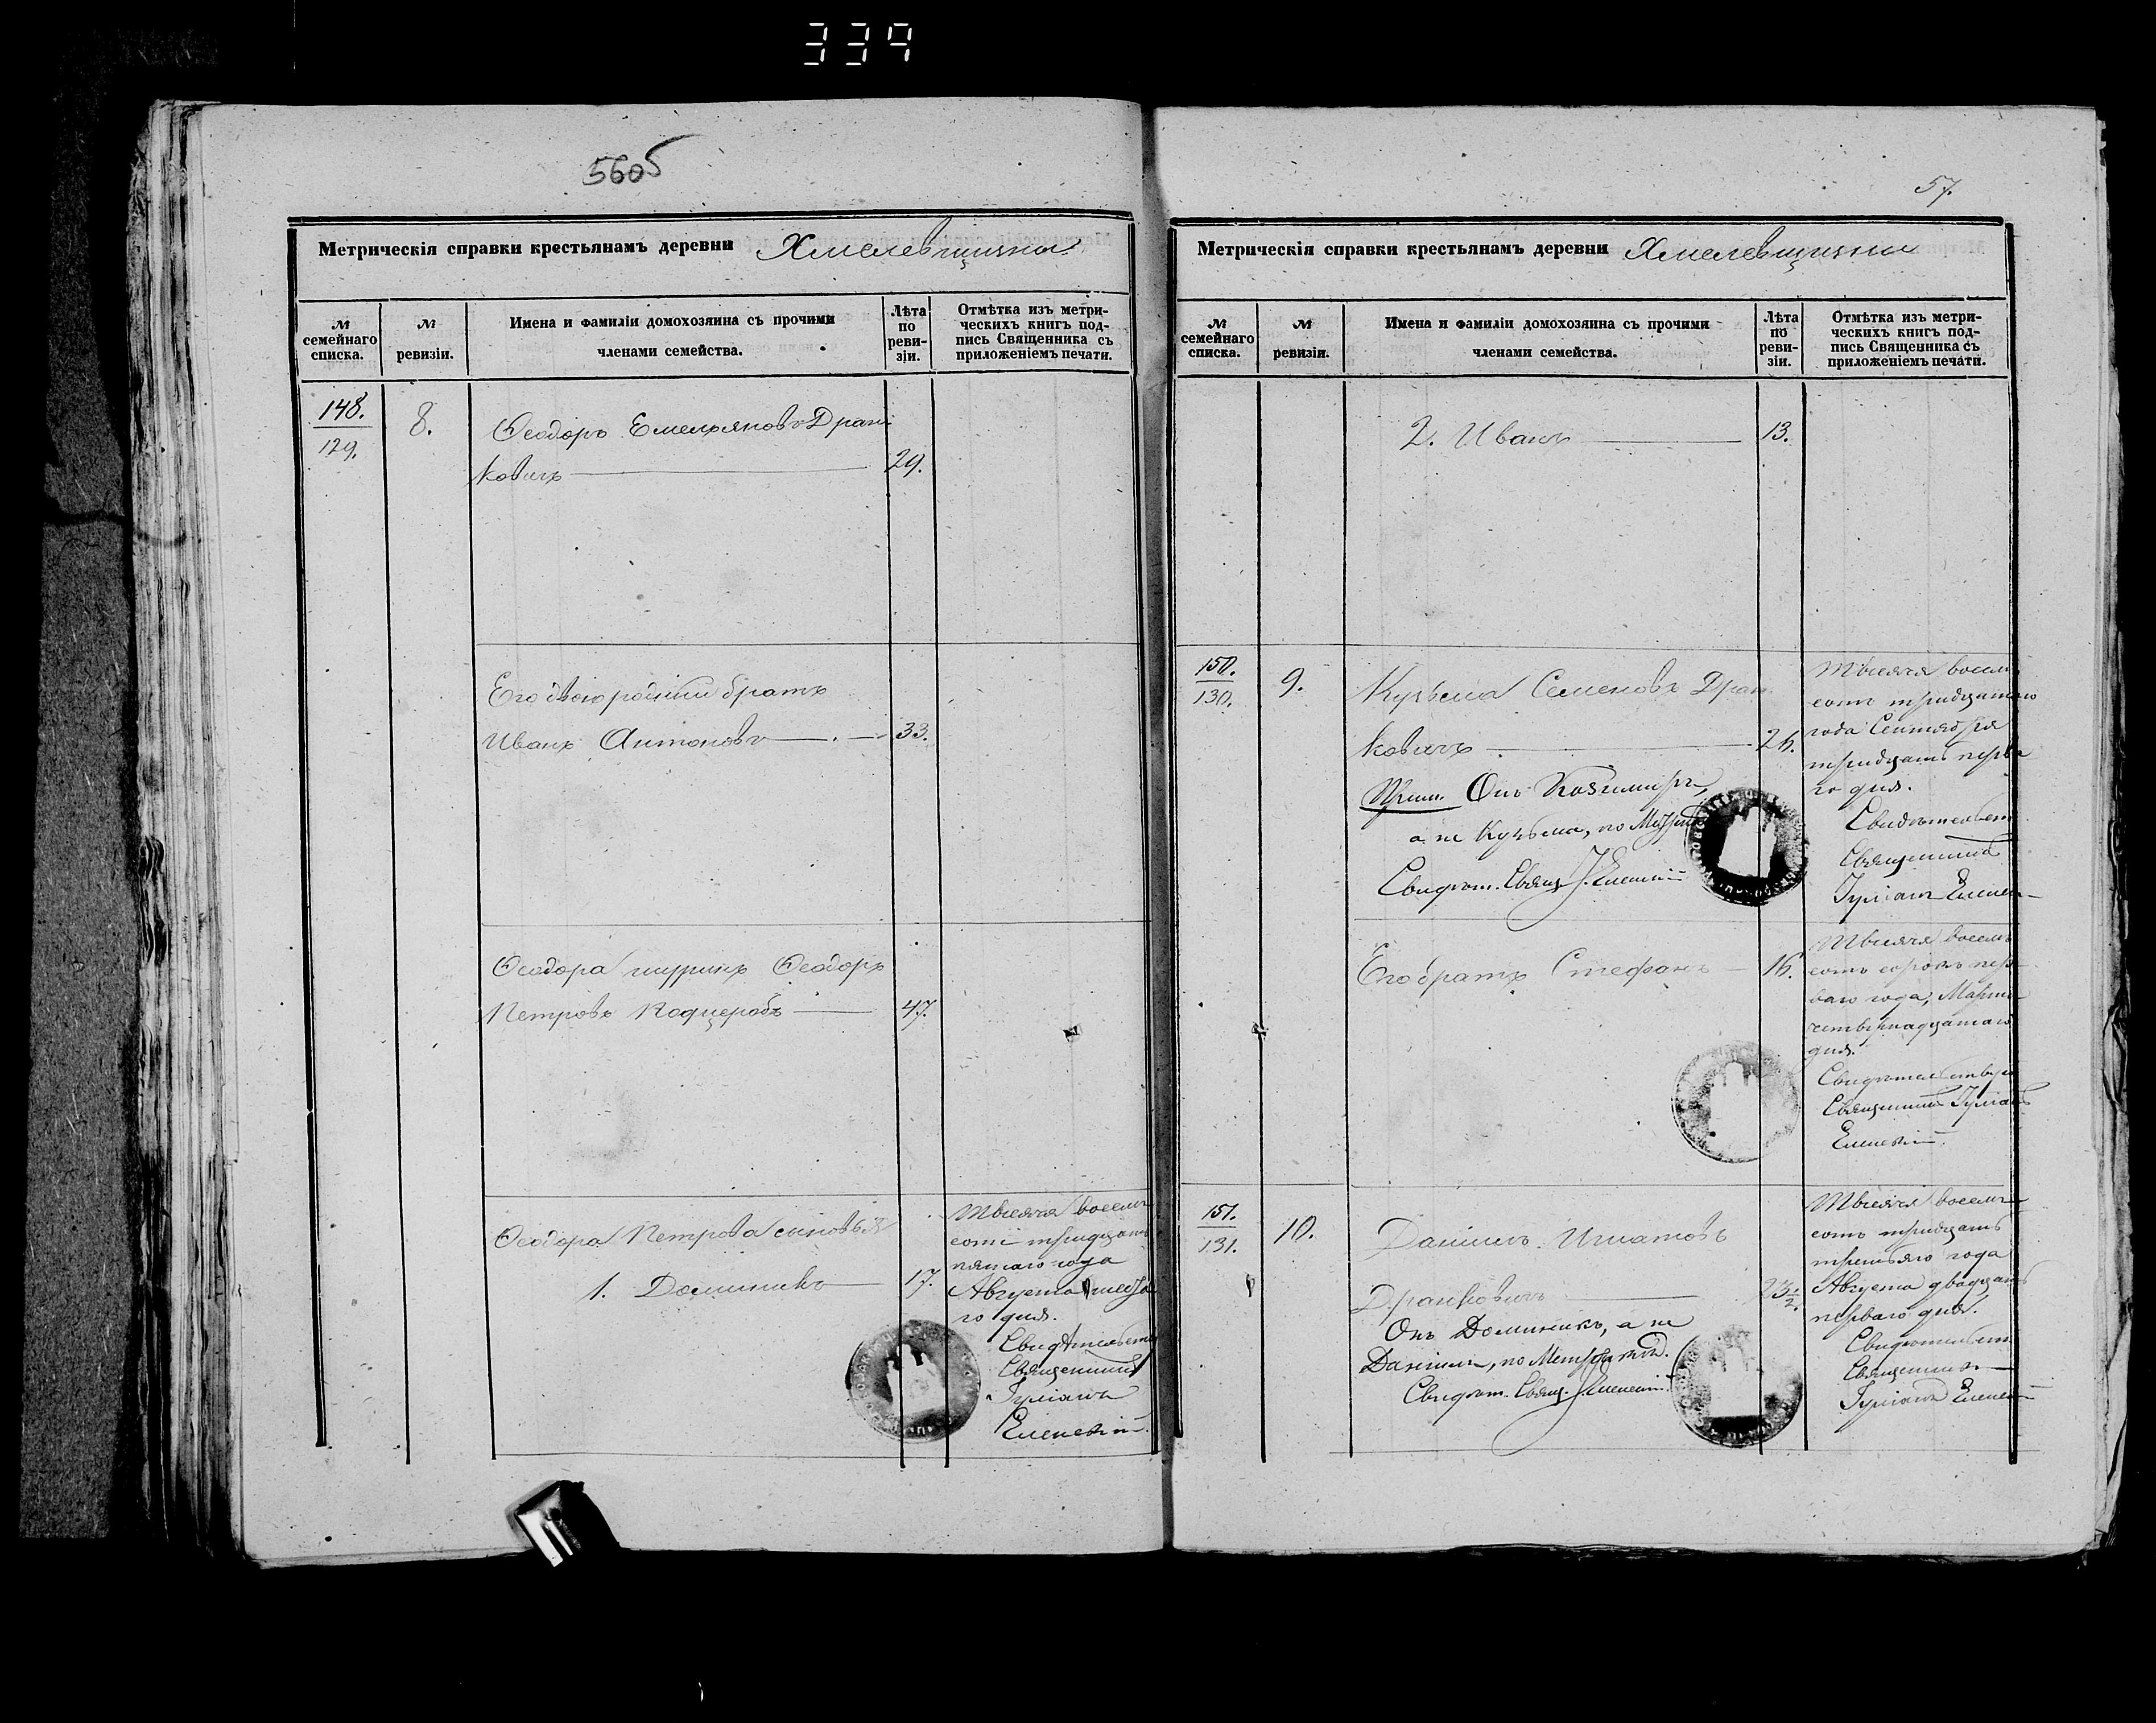 339
56об
Метрическія справки крестьянамъ деревни Хмелевщизны
№ семейнаго списка.
№ ревизіи.
Имена и фамиліи домохозяина съ прочими членами семейства.
Лѣта по ревизіи.
Отмѣтка изъ метрическихъ книгъ подпись Священника съ приложеніемъ печати.
148.
129.
8.
Ѳеодоръ Емельяновъ Дран
ковичъ
29.
Его двоюродный братъ
Иванъ Антоновъ
33.
Ѳеодора шуринъ Ѳеодоръ
Петровъ
47.
Ѳеодора Петрова сыновья
1. Доминикъ
17.
Тысяча восемь
сотъ тридцать
пятаго года
Августа
го дня.
Свидѣтельств
Священникъ
Іуліанъ
57.
Метрическія справки крестьянамъ деревни Хмелевщизны
№ семейнаго списка.
№ ревизіи.
Имена и фамиліи домохозяина съ прочими членами семейства.
Лѣта по ревизіи.
Отмѣтка изъ метрическихъ книгъ подпись Священника съ приложеніемъ печати.
2. Иванъ
13.
150.
130.
9.
Кузьма Семеновъ Дран
ковичъ
26.
Прим. Онъ Казимиръ,
а не Кузьма, по
Свидѣт. Свящ.
Тысяча восемь
сотъ тридцатаго
года Сентября
тридцать перва
го дня.
Свидѣтельств
Священникъ
Іуліанъ
Его братъ Стефанъ
16.
Тысяча восемь
сотъ сорокъ пер
ваго года, Марта
четвернадцатаго
дня.
Свидѣтельству
Священникъ Іуліанъ
151.
131.
10.
Даніилъ Игнатовъ
Дранковичъ
23½.
Онъ Доминикъ, а не
Даніилъ, по
Свидѣт. Свящ.
Тысяча восемь
сотъ тридцать
третьяго года
Августа двадцать
перваго дня.
Свидѣтельств
Священникъ
Іуліанъ